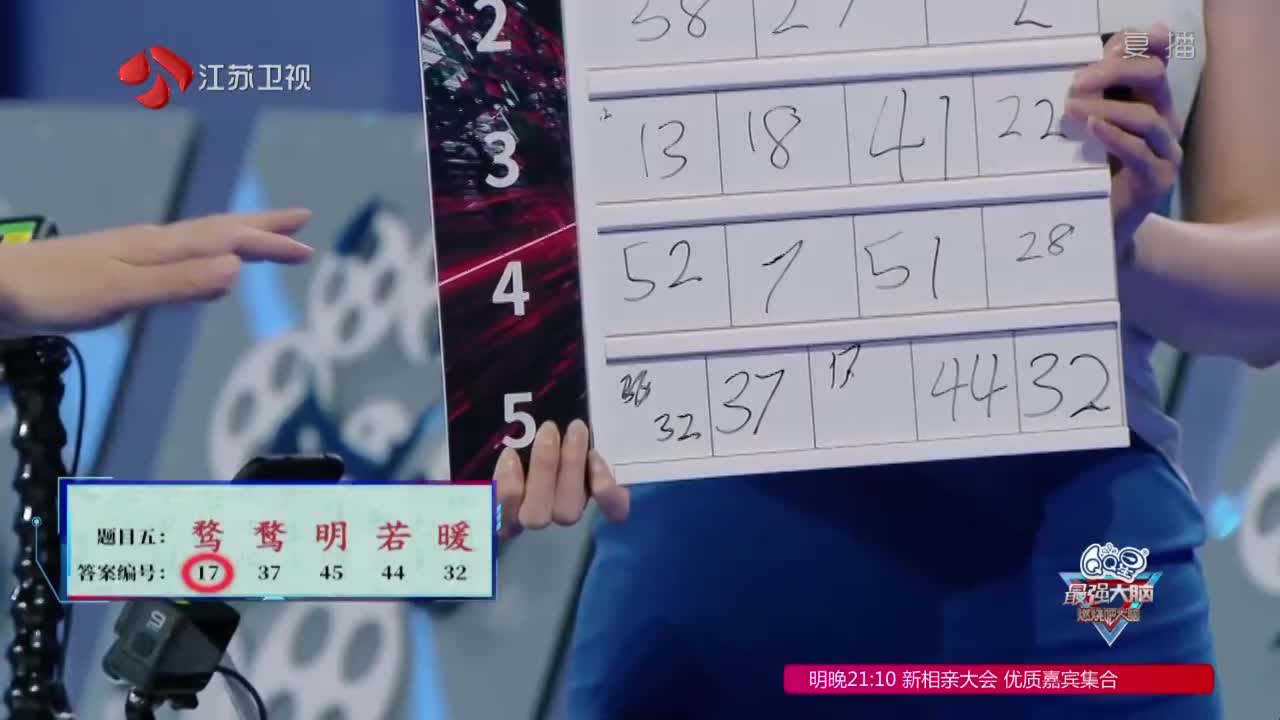 2 38 27 2
江苏卫视
重播
3 13 18 41 22
4 52 7 51 28
5 32 37 17 44 32
题目五: 鹜 鹜 明 若 暖
答案编号: 17 37 45 44 32
QQ星
最强大脑
燃烧吧大脑
明晚21:10 新相亲大会 优质嘉宾集合